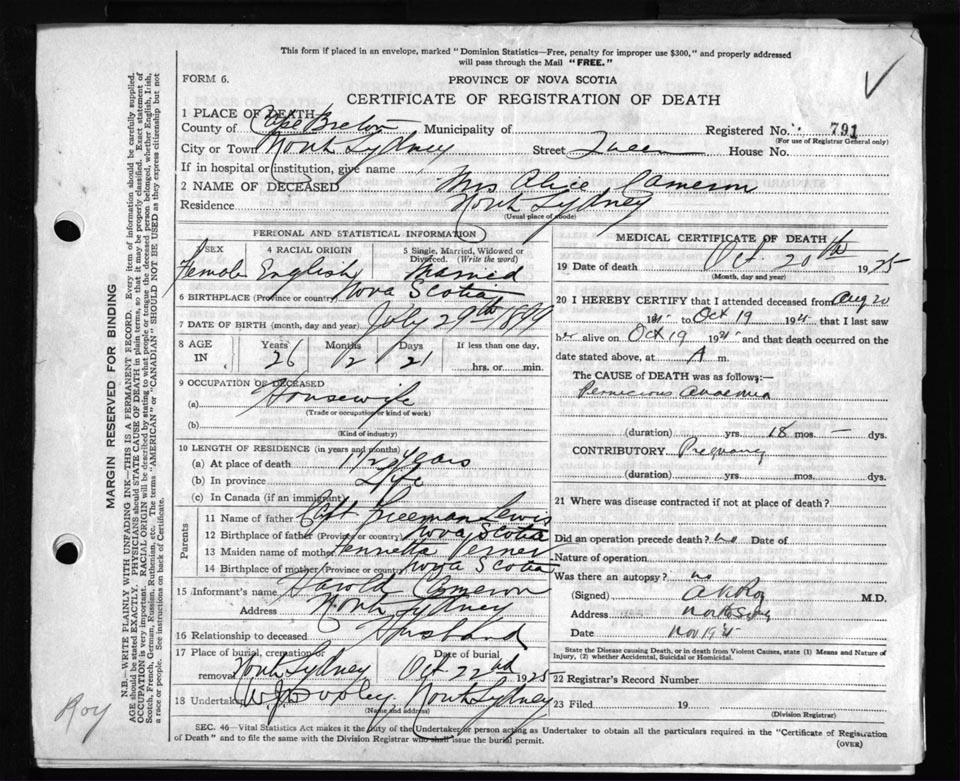 This form if placed in an envelope, marked "Dominion Statistics—Free, penalty for improper use $300," and properly addressed
will pass through the Mail "FREE."
FORM 6.
PROVINCE OF NOVA SCOTIA
CERTIFICATE OF REGISTRATION OF DEATH
1 PLACE OF DEATH
County of Cape Breton Municipality of Registered No. 791
(For use of Registrar General only)
City or Town North Sydney Street Queen House No.
If in hospital or institution, give name
2 NAME OF DECEASED Mrs Alice Cameron
Residence North Sydney
(Usual place of abode)
PERSONAL AND STATISTICAL INFORMATION
3 SEX 4 RACIAL ORIGIN 5 Single, Married, Widowed or
Divorced. (Write the word)
Female English Married
6 BIRTHPLACE (Province or country) Nova Scotia
7 DATE OF BIRTH (month, day and year) July 29th 1899
8 AGE IN Years 26 Months 2 Days 21 If less than one day,
hrs. or min.
9 OCCUPATION OF DECEASED
(a) Housewife
(Trade or occupation or kind of work)
(b)
(Kind of industry)
10 LENGTH OF RESIDENCE (in years and months)
(a) At place of death 1 1/2 Years
(b) In province Life
(c) In Canada (if an immigrant)
Parents
11 Name of father Capt Freeman Lewis
12 Birthplace of father (Province or country) Nova Scotia
13 Maiden name of mother Henrietta
14 Birthplace of mother (Province or country) Nova Scotia
15 Informant's name Harold Cameron
Address North Sydney
16 Relationship to deceased Husband
17 Place of burial, cremation or removal North Sydney Date of burial Oct 22nd 1925
18 Undertaker W.J. Dooley North Sydney
(Name and address)
MEDICAL CERTIFICATE OF DEATH
19 Date of death Oct. 20th 1925
(Month, day and year)
20 I HEREBY CERTIFY that I attended deceased from Aug 20
1925 to Oct 19 1925 that I last saw
her alive on Oct 19 1925 and that death occurred on the
date stated above, at A m.
The CAUSE of DEATH was as follows:—
Pernicious Anaemia
(duration) yrs. 18 mos. – dys.
CONTRIBUTORY Pregnancy
(duration) yrs. mos. dys.
21 Where was disease contracted if not at place of death?
Did an operation precede death? no Date of
Nature of operation
Was there an autopsy? no
(Signed) Roy M.D.
Address
Date Nov 1925
State the Disease causing Death, or in death from Violent Causes, state (1) Means and Nature of
Injury, (2) whether Accidental, Suicidal or Homicidal.
22 Registrar's Record Number
23 Filed 19
(Division Registrar)
SEC. 46—Vital Statistics Act makes it the duty of the Undertaker or person acting as Undertaker to obtain all the particulars required in the "Certificate of Registration
of Death" and to file the same with the Division Registrar who shall issue the burial permit.
(OVER)
MARGIN RESERVED FOR BINDING
N.B.—WRITE PLAINLY WITH UNFADING INK—THIS IS A PERMANENT RECORD. Every item of information should be carefully supplied.
AGE should be stated EXACTLY. PHYSICIANS should STATE CAUSE OF DEATH in plain terms, so that it may be properly classified. Exact statement of
OCCUPATION is very important. RACIAL ORIGIN will be described by stating to what people or tongue the deceased person belonged, whether English, Irish,
Scotch, French, German, Russian, Ruthenian, etc. The terms "AMERICAN" or "CANADIAN" SHOULD NOT BE USED as they express citizenship but not
a race or people. See instructions on back of Certificate.
Roy